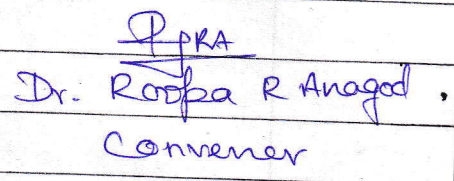 Dr. Roopa R Anagod.
Convener